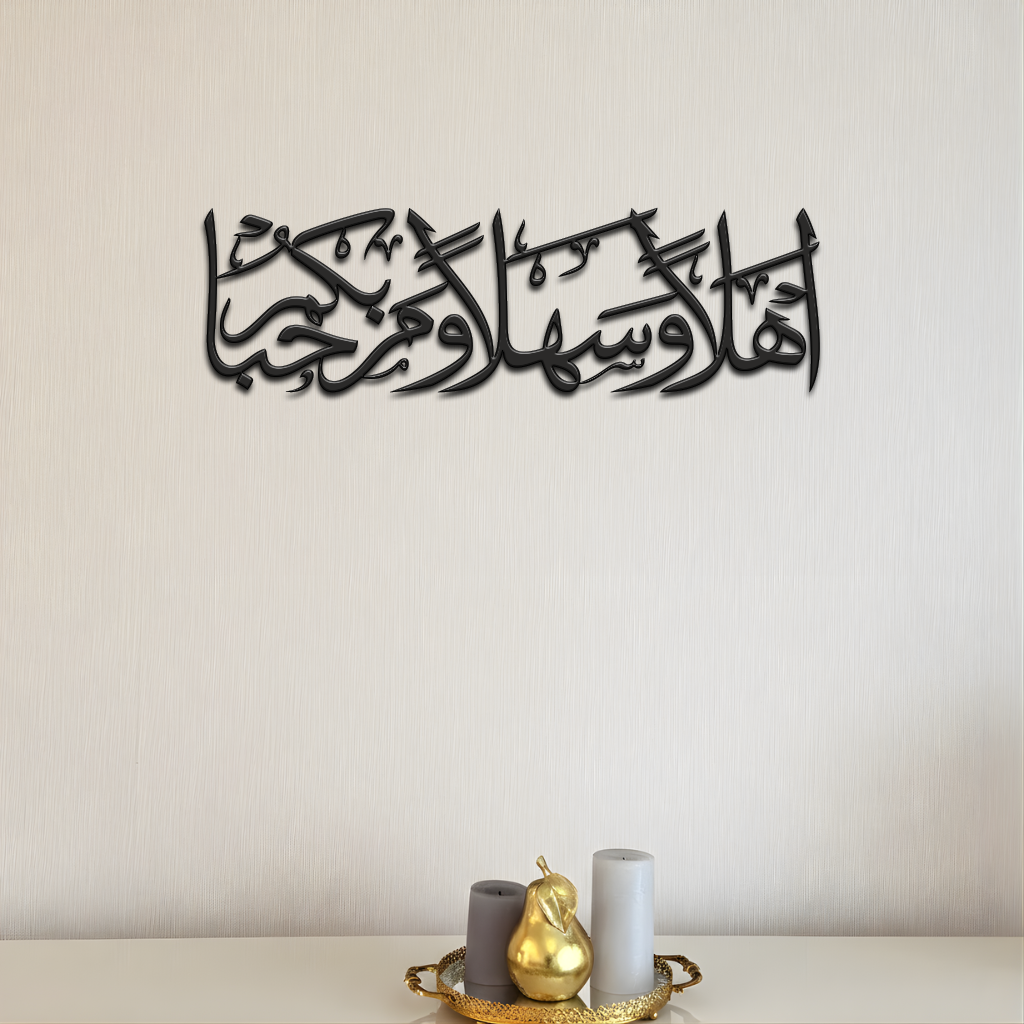 أهلا وسهلا ومرحبا بكم